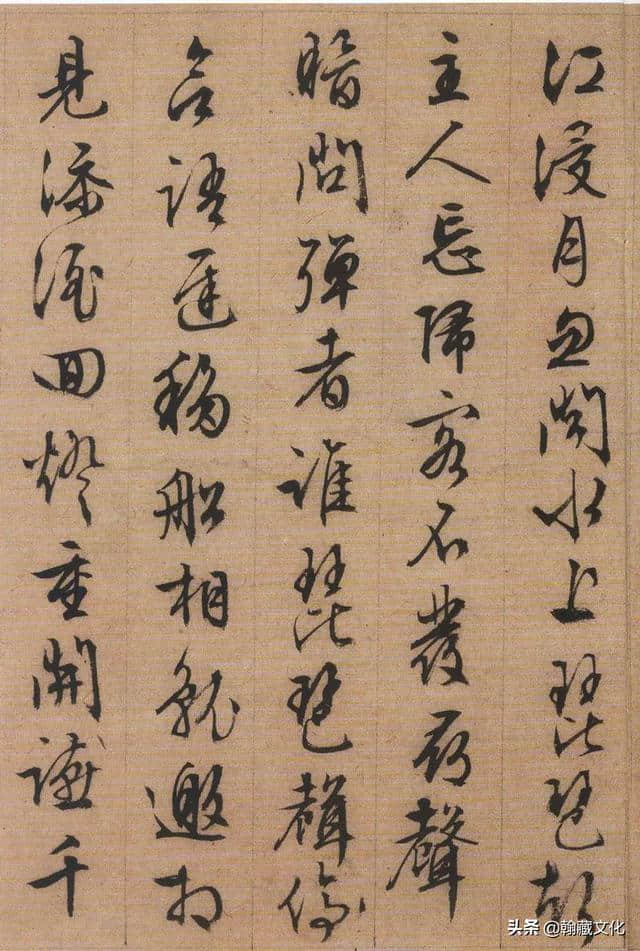 江浸月忽聞水上琵琶聲
主人忘歸客不發尋聲
暗問彈者誰琵琶聲停
欲語遲移船相就邀相
見添酒回燈重開讌千
头条 @翰藏文化